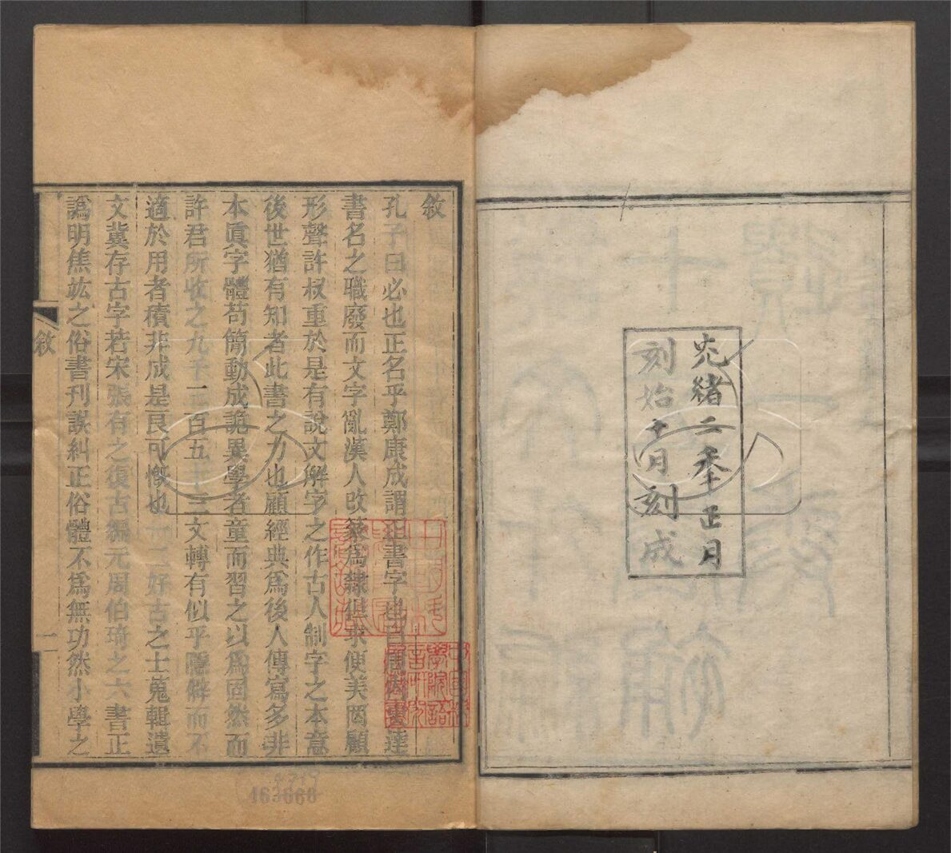 光緒二秊正月
刻始十月刻成
敘
孔子曰必也正名乎鄭康成謂正書字也自周衰達
書名之職廢而文字亂漢人改篆為隸但求便美罔顧
形聲許叔重於是有說文解字之作古人制字之本意
後世猶有知者此書之力也顧經典為後人傳寫多非
本眞字體苟簡動成詭異學者童而習之以為固然而
許君所收之九千三百五十三文轉有似乎隱僻而不
適於用者積非成是良可慨也一二好古之士蒐輯遺
文冀存古字若宋張有之復古編元周伯琦之六書正
譌明焦竑之俗書刊誤糾正俗體不為無功然小學之
敘
一
463666